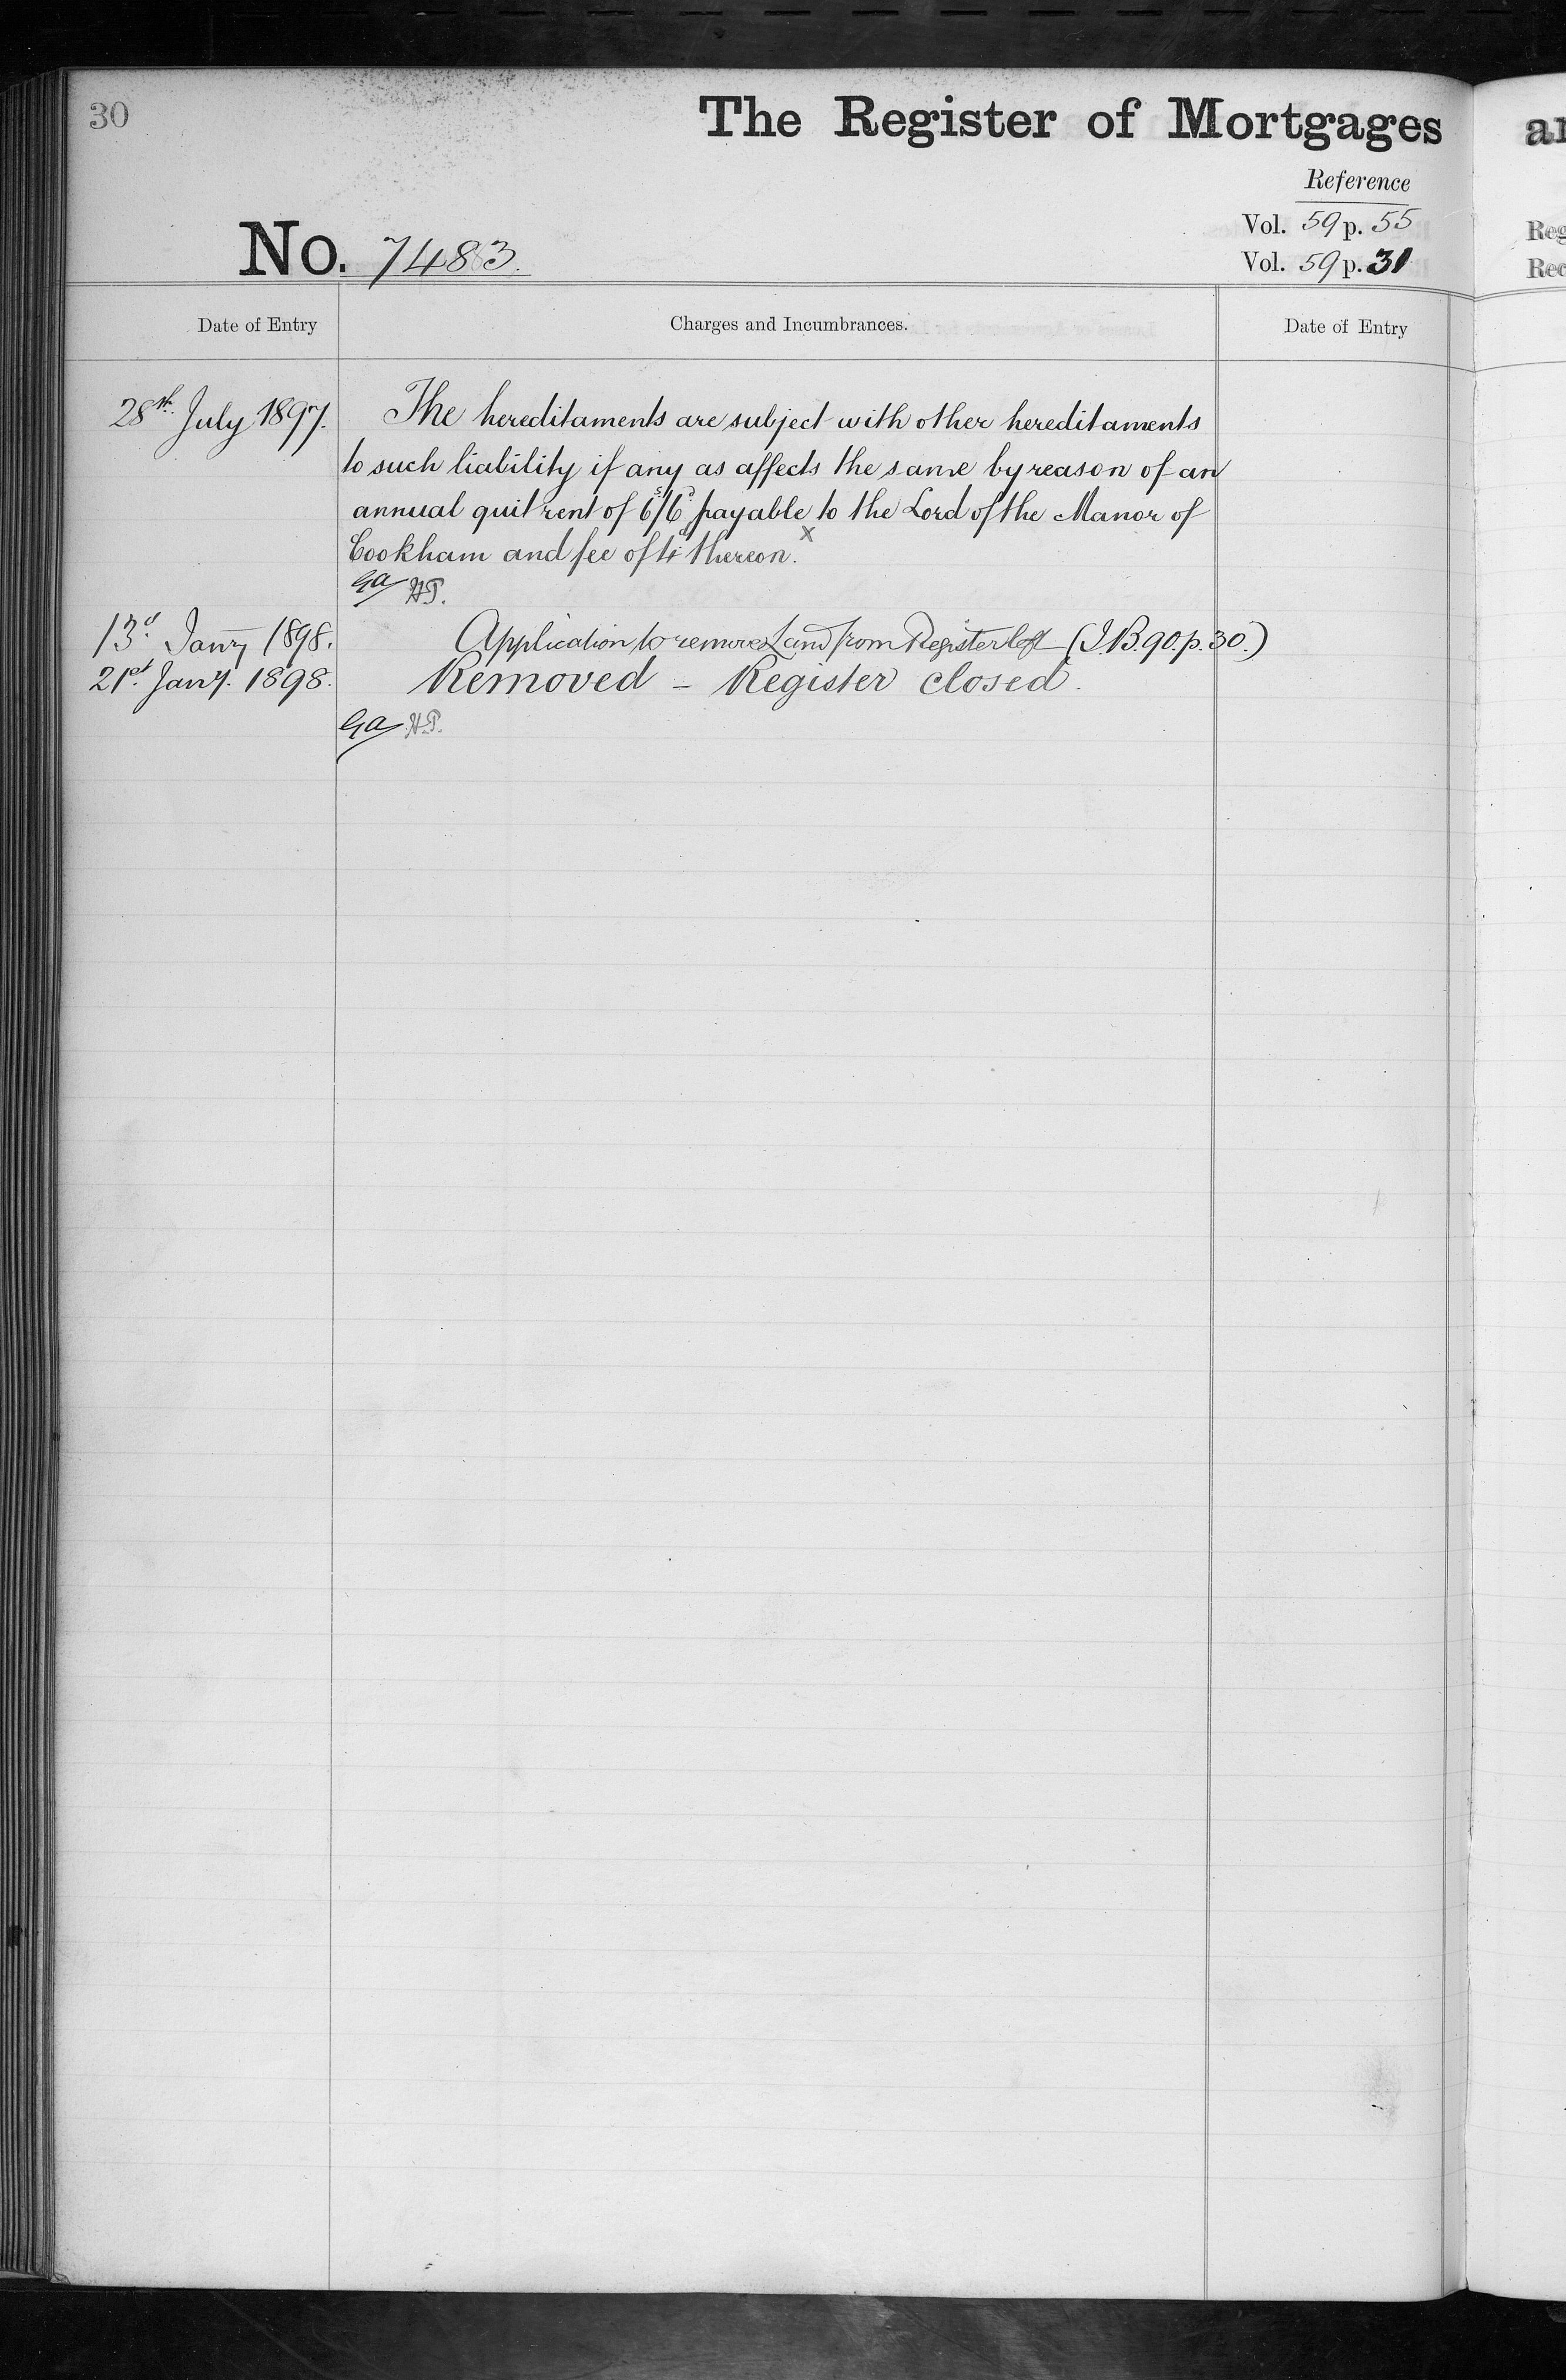 30
The Register of Mortgages
Reference
Vol. 59 p. 55
Vol. 59 p. 31
No. 7483.
Date of Entry
Charges and Incumbrances.
Date of Entry
28th July 1897.
The hereditaments are subject with other hereditaments
to such liability if any as affects the same by reason of an
annual quit rent of 6s/6d payable to the Lord of the Manor of
Cookham and fee of 4d thereon. x
GA HP.
13d Jany 1898.
Application to remove Land from Register left (I.B. 90. p. 30.)
21st Jany. 1898.
Removed - Register closed.
GA HP.
ar
Reg
Rec